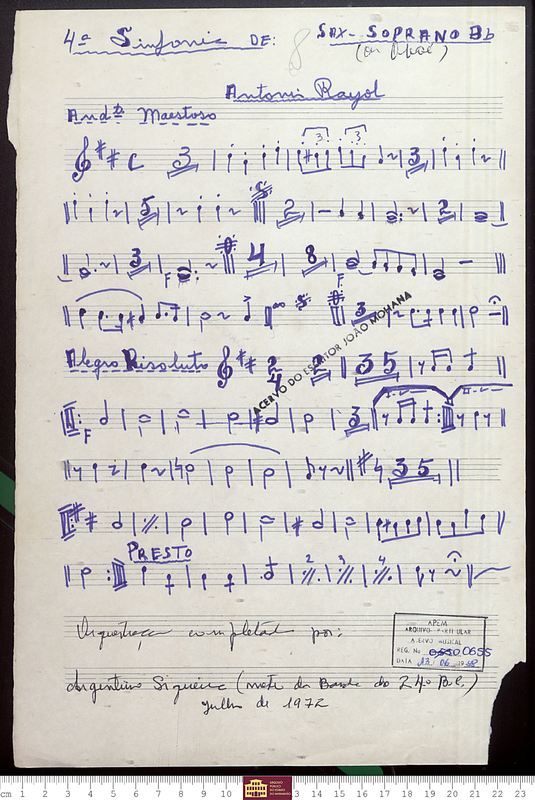 4ª Sinfonia DE: 8 SAX-SOPRANO Bb
(ou Oboé)
Antonio Rayol
Andte Maestoso
3 3 3 3
5 2 2
3 F 4 8 F
3
ACERVO DO ESCRITOR JOÃO MOHANA
Alegro Risoluto 2/4 2 35
F 3 1- 2-
35
PRESTO
2 3 4
Orquestraçao completada por:
APEM
ARQUIVO PARTICULAR
ACERVO MUSICAL
REG. No 0655
DATA 13 06
Argentino Siqueira (mtr. da Banda do 24º B.C.)
Julho de 1972
cm 1 2 3 4 5 6 7 8 9 10 13 14 15 16 17 18 19 20 21 22 23